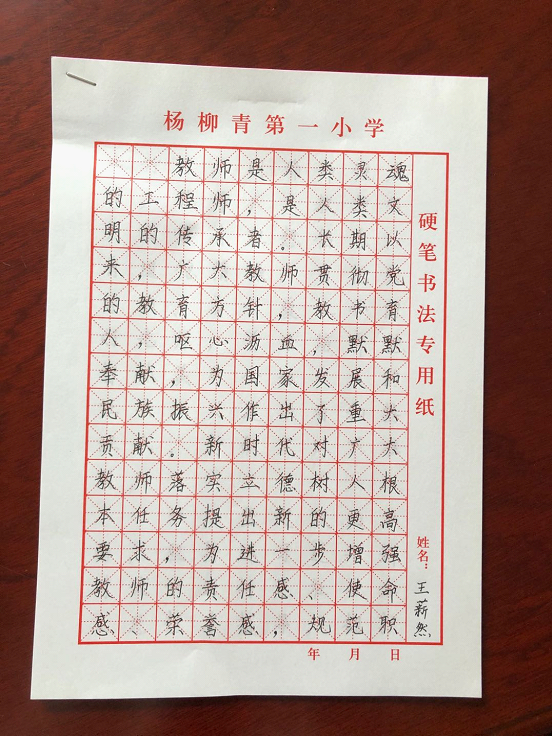 杨柳青第一小学
教师是人类灵魂
的工程师，是人类文
明的传承者。长期以
来，广大教师贯彻党
的教育方针，教书育
人，呕心沥血，默默
奉献，为国家发展和
民族振兴作出了重大
贡献。新时代对广大
教师落实立德树人根
本任务提出新的更高
要求，为进一步增强
教师的责任感、使命
感、荣誉感，规范职
硬笔书法专用纸
姓名：王薪然
年 月 日